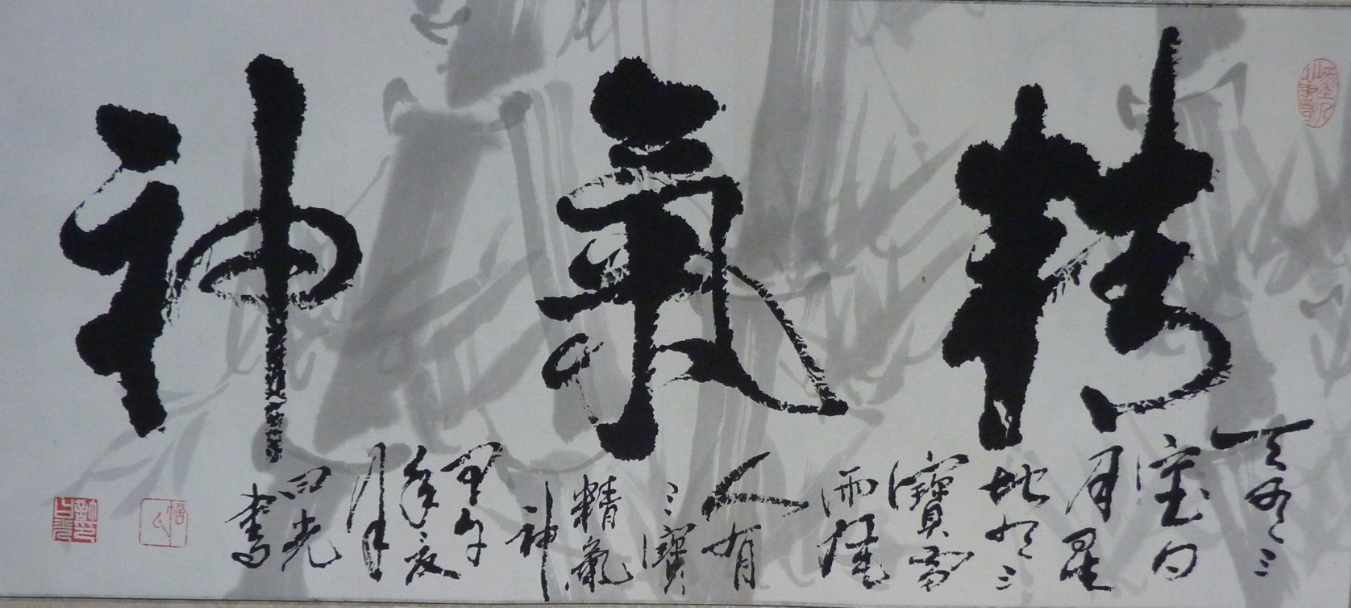 精氣神
天有三
宝日
月星
地有三
寶
人有
三寶
精氣
神
甲午
年夏
月
四光
書